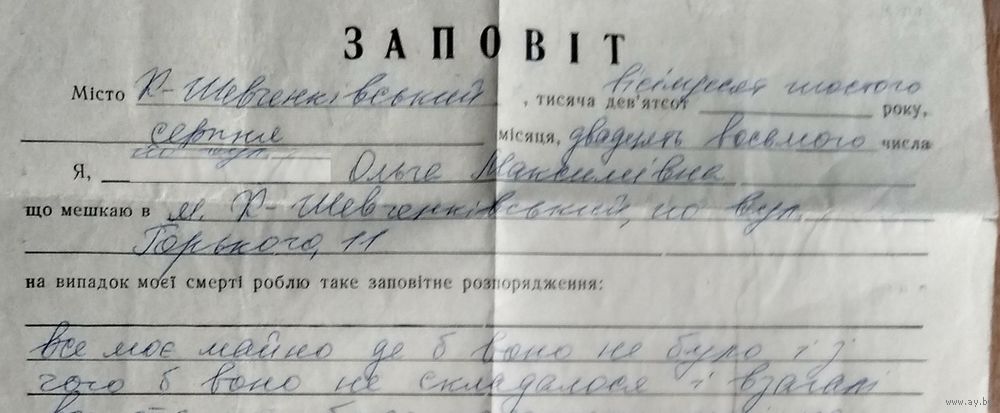 ЗАПОВІТ
Місто К-Шевченківський, тисяча дев'ятсот вісімдесят шостого року,
серпня місяця, двадцять восьмого числа
Я, Ольга Максимівна
що мешкаю в м. К-Шевченківський, по вул.
Горького, 11
на випадок моєї смерті роблю таке заповітне розпорядження:
все моє майно де б воно не було і з
чого б воно не складалося і взагалі
www.ay.b